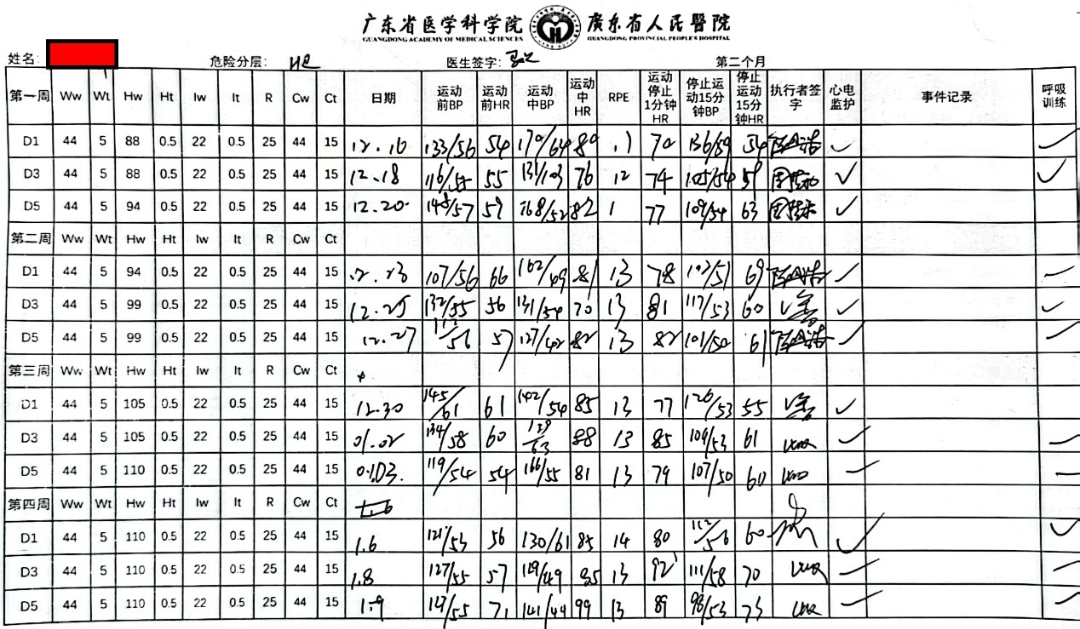 广东省医学科学院 廣东省人民醫院
GUANGDONG ACADEMY OF MEDICAL SCIENCES GUANGDONG PROVINCIAL PEOPLE'S HOSPITAL
姓名: 危险分层: 医生签字: 第二个月
第一周 Ww Wt Hw Ht Iw It R Cw Ct 日期 运动前BP 运动前HR 运动中BP 运动中HR RPE 运动停止1分钟HR 停止运动15分钟BP 停止运动15分钟HR 执行者签字 心电监护 事件记录 呼吸训练
D1 44 5 88 0.5 22 0.5 25 44 15 12.16 133/56 54 170/64 80 70 136/59 54 ✓ ✓
D3 44 5 88 0.5 22 0.5 25 44 15 12.18 116/55 55 131/103 76 12 74 105/54 59 ✓ ✓
D5 44 5 94 0.5 22 0.5 25 44 15 12.20 148/57 59 168/52 82 77 109/54 63 ✓
第二周 Ww Wt Hw Ht Iw It R Cw Ct
D1 44 5 94 0.5 22 0.5 25 44 15 12.23 107/56 66 162/49 81 13 78 102/51 69 ✓
D3 44 5 99 0.5 22 0.5 25 44 15 12.25 132/55 56 131/54 70 13 81 117/53 60 ✓ ✓
D5 44 5 99 0.5 22 0.5 25 44 15 12.27 57 127/42 82 13 82 101/50 61 ✓
第三周 Ww Wt Hw Ht Iw It R Cw Ct
D1 44 5 105 0.5 22 0.5 25 44 15 12.30 145/61 61 142/54 85 13 77 126/53 55 ✓
D3 44 5 105 0.5 22 0.5 25 44 15 01.02 134/58 60 139/63 88 13 85 109/53 61 ✓
D5 44 5 110 0.5 22 0.5 25 44 15 01.03. 119/54 54 166/55 81 13 79 107/50 60
第四周 Ww Wt Hw Ht Iw It R Cw Ct
D1 44 5 110 0.5 22 0.5 25 44 15 1.6 121/53 56 130/61 85 14 80 112/56 60 ✓ ✓
D3 44 5 110 0.5 22 0.5 25 44 15 1.8 127/55 57 119/49 85 13 92 111/58 70
D5 44 5 110 0.5 22 0.5 25 44 15 1.9 127/55 71 141/49 99 13 89 98/53 73